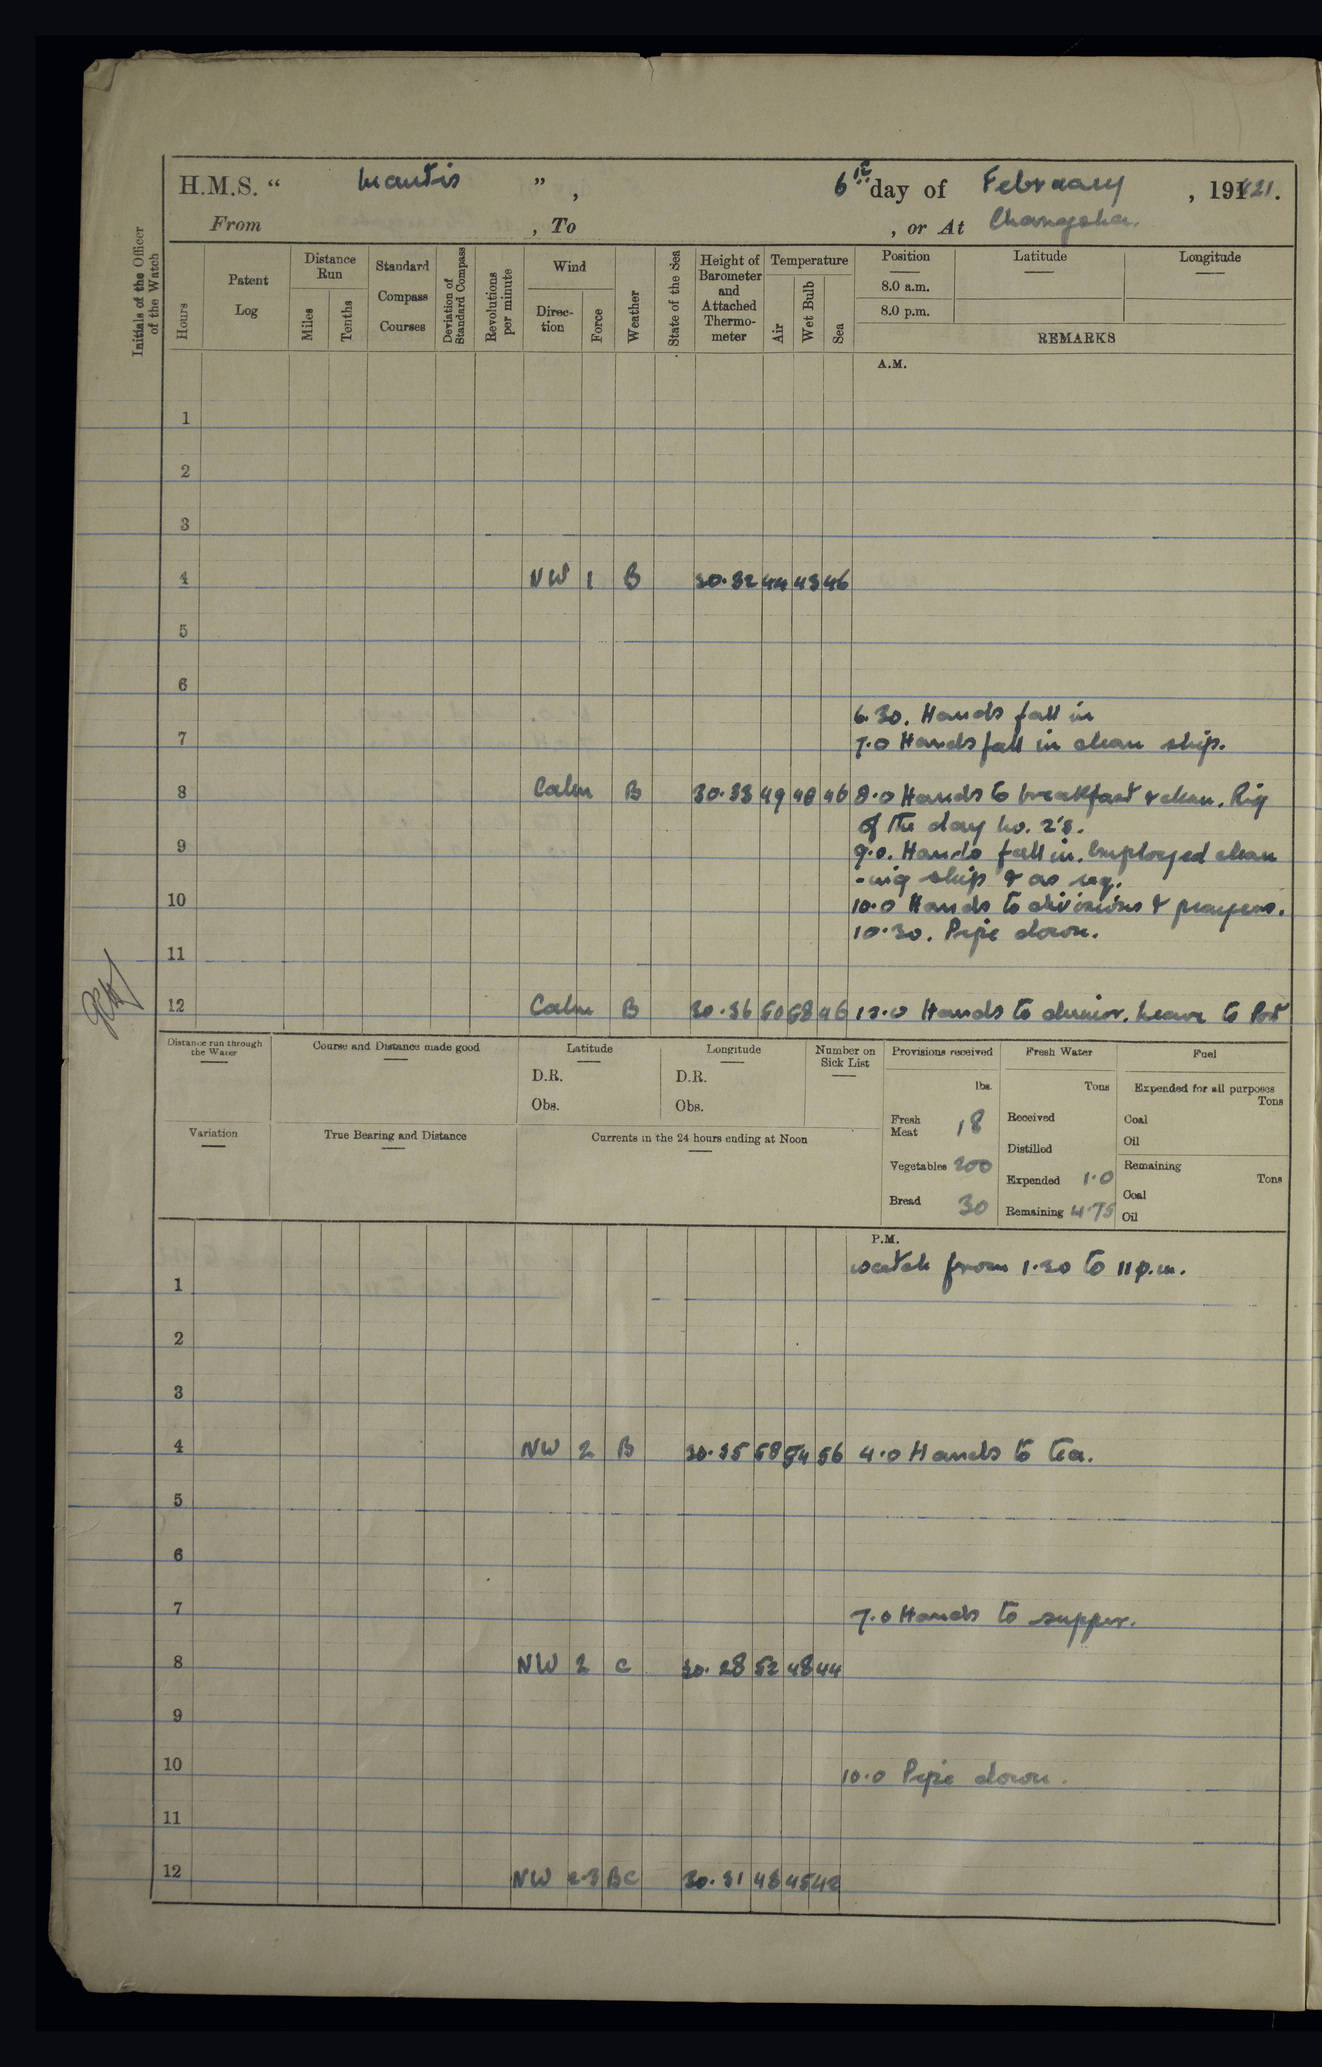 H.M.S. “ Mantis ”, 6th day of February, 1921.
From , To , or At Changsha.
Initials of the Officer of the Watch
Hours
Patent Log
Distance Run
Miles
Tenths
Standard Compass Courses
Deviation of Standard Compass
Revolutions per minute
Wind
Direction
Force
Weather
State of the Sea
Height of Barometer and Attached Thermometer
Temperature
Air
Wet Bulb
Sea
Position
8.0 a.m.
8.0 p.m.
Latitude
Longitude
REMARKS
A.M.
1
2
3
4 NW 1 B 30.32 44 43 46
5
6
6.30. Hands fall in
7 7.0 Hands fall in clean ship.
8 Calm B 30.33 49 48 46 8.0 Hands to breakfast & clean. Rig
of the day No. 2's.
9 9.0. Hands fall in. Employed clean
-ing ship & as req.
10 10.0 Hands to divisions & prayers.
10.30. Pipe down.
11
12 Calm B 30.36 60 58 46 12.0 Hands to dinner. Leave to Port
Distance run through the Water
Course and Distance made good
Latitude
D.R.
Obs.
Longitude
D.R.
Obs.
Number on Sick List
Provisions received
lbs.
Fresh Meat 18
Vegetables 200
Bread 30
Fresh Water
Tons
Received
Distilled
Expended 1.0
Remaining 4.75
Fuel
Expended for all purposes
Tons
Coal
Oil
Remaining
Tons
Coal
Oil
Variation
True Bearing and Distance
Currents in the 24 hours ending at Noon
P.M.
watch from 1.30 to 11 p.m.
1
2
3
4 NW 2 B 30.35 58 54 56 4.0 Hands to tea.
5
6
7 7.0 Hands to supper.
8 NW 2 C 30.28 52 48 44
9
10 10.0 Pipe down.
11
12 NW 2-3 BC 30.31 48 45 42